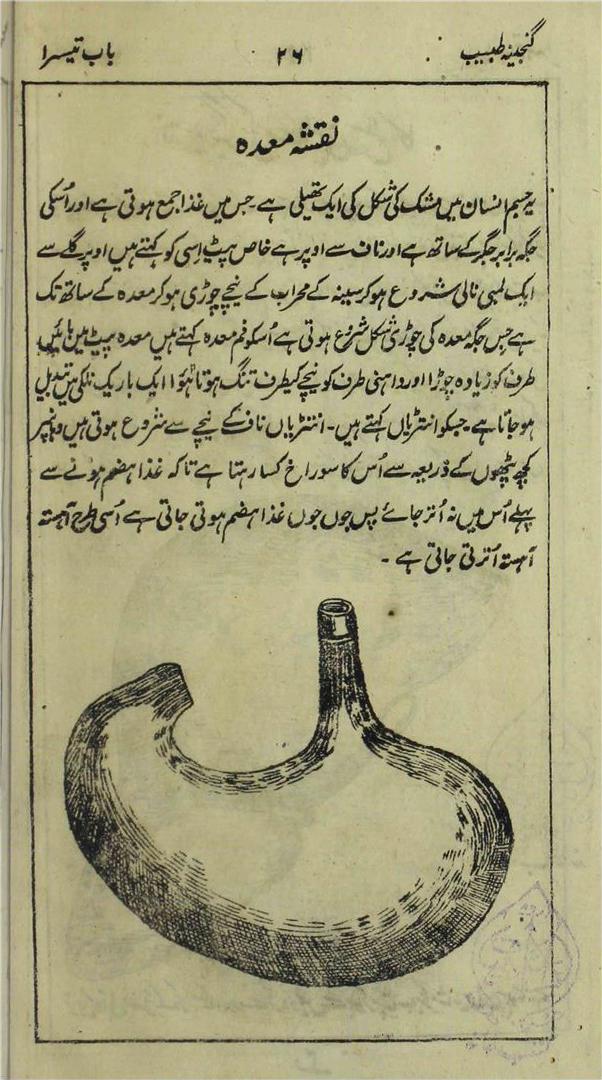 گنجینہ طبیب
۲۶
باب تیسرا
نقشہ معدہ
یہ جسم انسان میں مشک کی شکل کی ایک تھیلی ہے جس میں غذا جمع ہوتی ہے اور اُسکی
جگہ برابر جگر کے ساتھ ہے اور ناف سے اوپر ہے خاص پیٹ اِسی کو کہتے ہیں اوپر گلے سے
ایک لمبی نالی شروع ہو کر سینہ کے محراب کے نیچے چوڑی ہو کر معدہ کے ساتھ تک
ہے جس جگہ معدہ کی چوڑی شکل شروع ہوتی ہے اُسکو فم معدہ کہتے ہیں معدہ پیٹ میں بائیں
طرف کو زیادہ چوڑا اور داہنی طرف کو نیچے کیطرف تنگ ہوتا ہؤا ایک باریک نلکی میں تبدیل
ہو جاتا ہے۔ جسکو انتڑیاں کہتے ہیں۔ انتڑیاں ناف کے نیچے سے شروع ہوتی ہیں وہانپر
کچھ پٹھوں کے ذریعہ سے اُس کا سوراخ کسا رہتا ہے تا کہ غذا ہضم ہونے سے
پہلے اُس میں نہ اُتر جائے پس جوں جوں غذا ہضم ہوتی جاتی ہے اُسی طرح آہستہ
آہستہ اُترتی جاتی ہے ۔